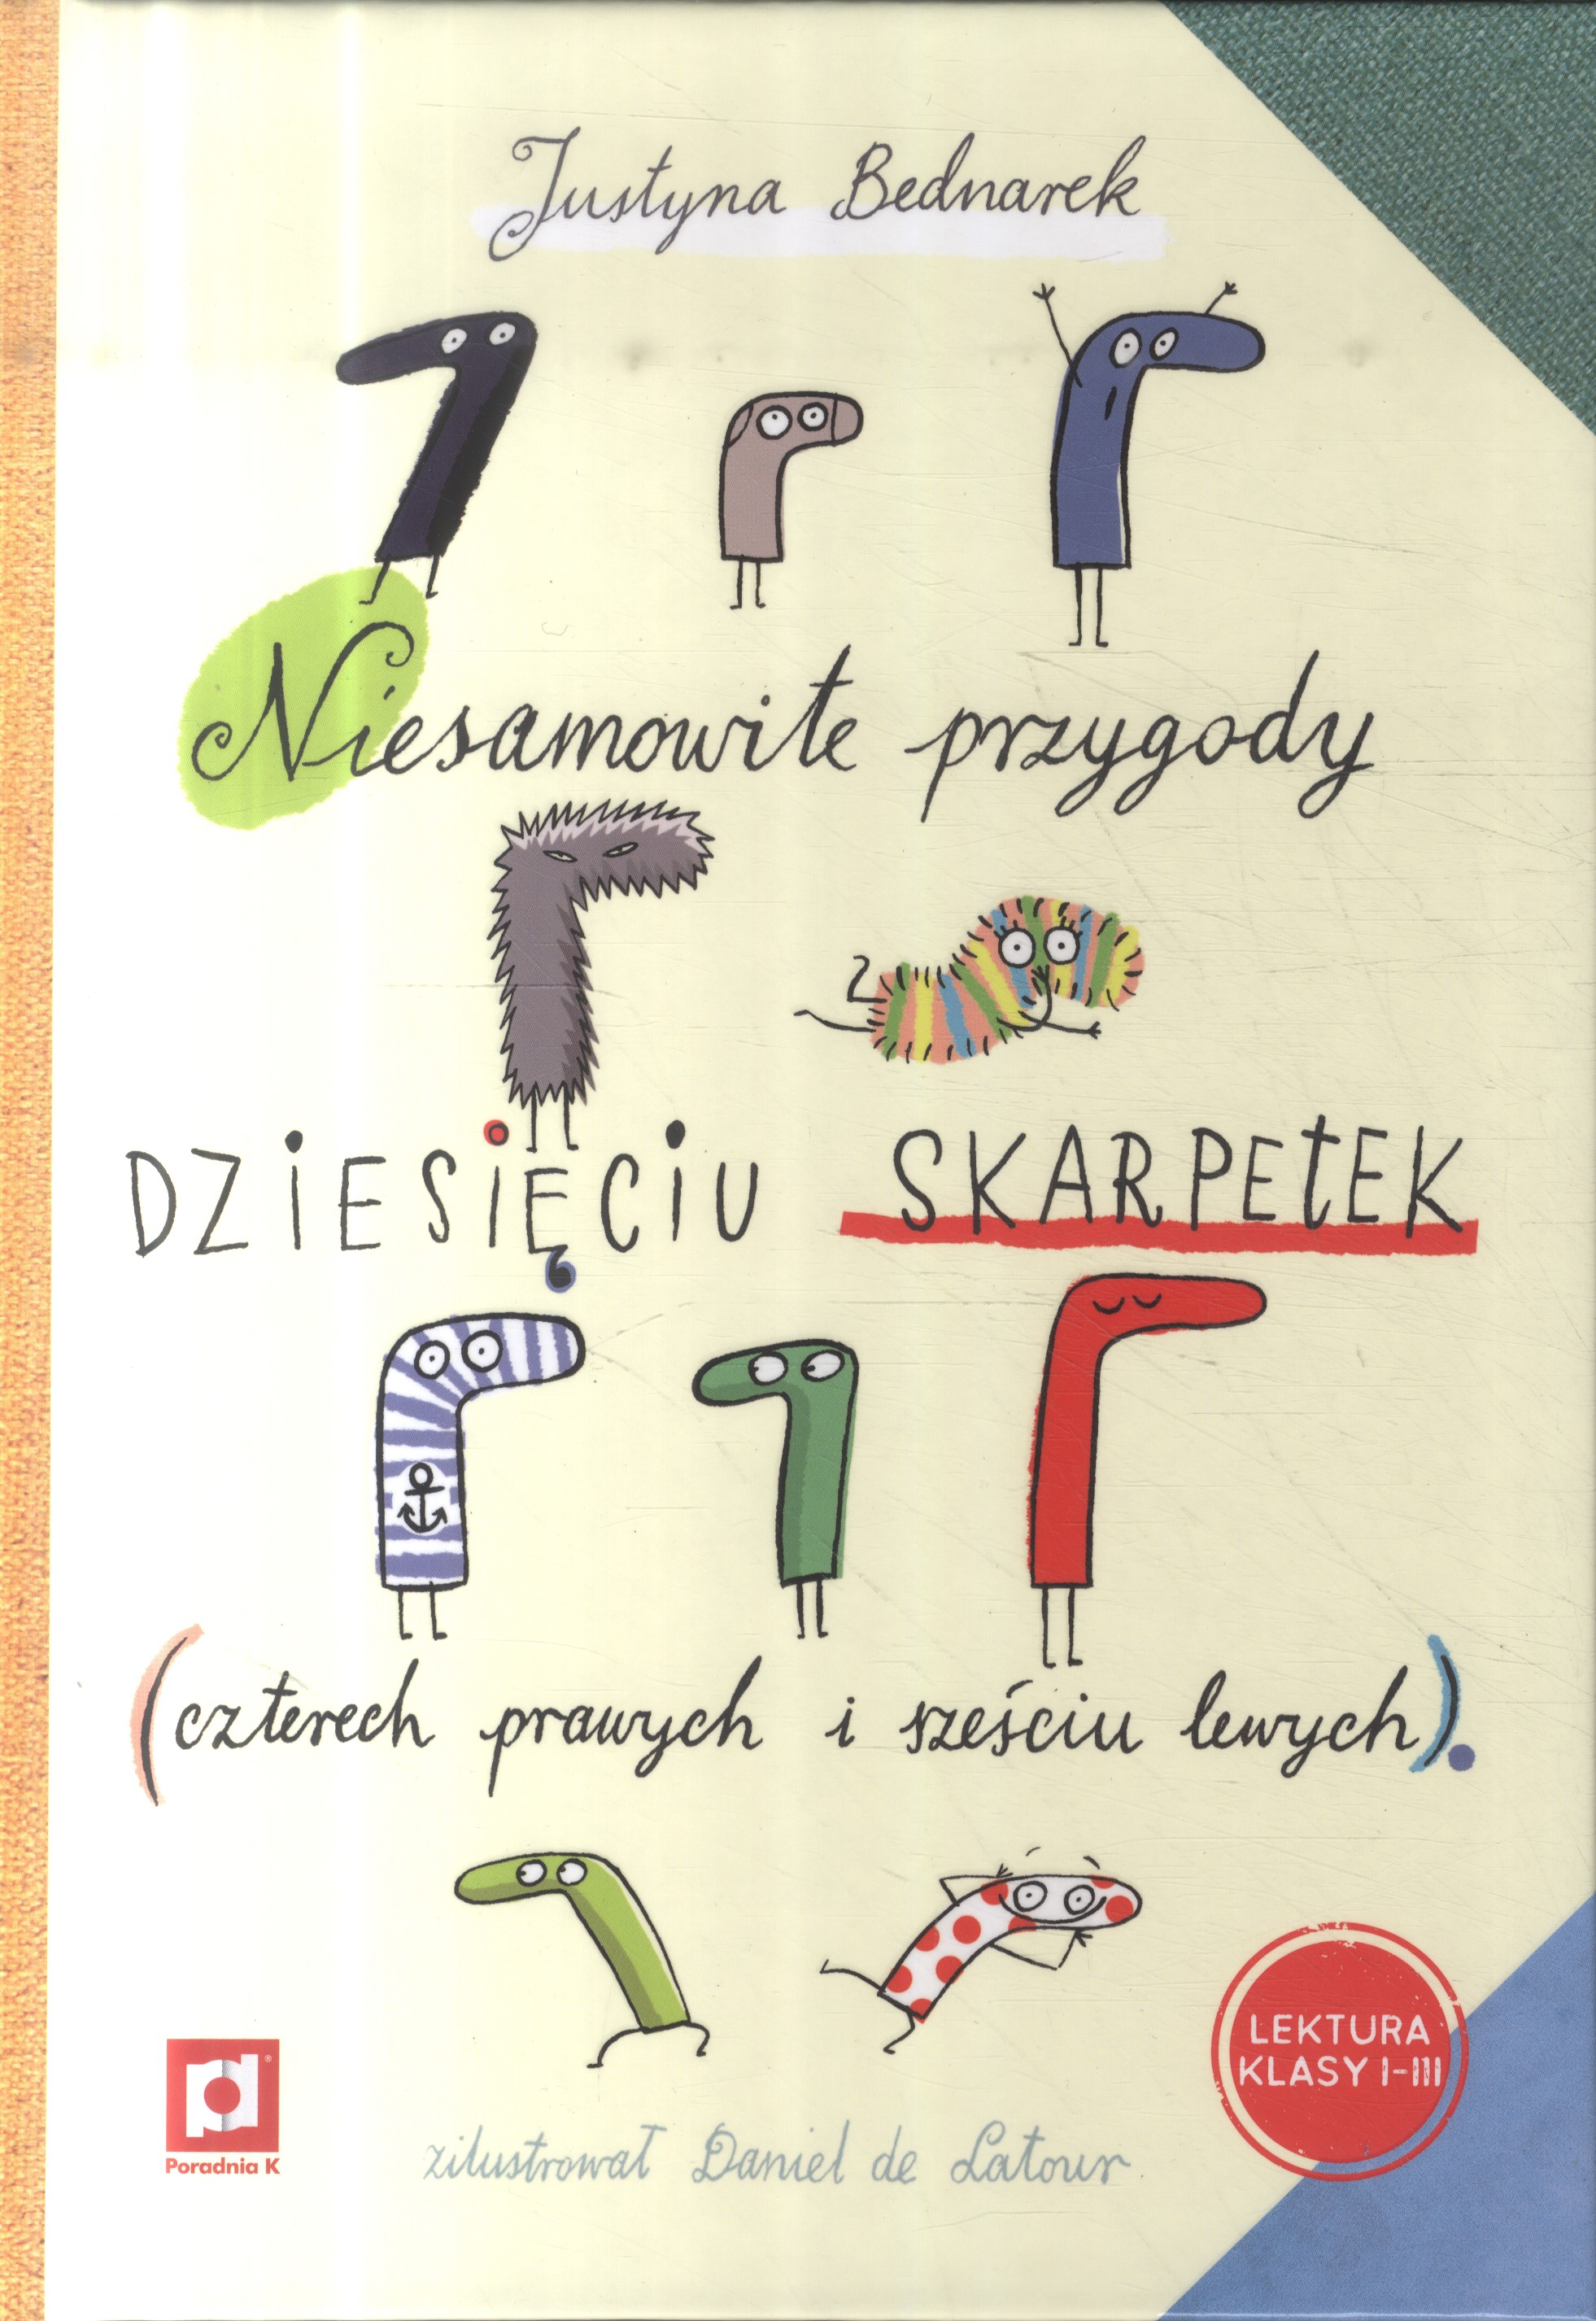 Justyna Bednarek
Niesamowite przygody
DZiESiĘCiU SKARPEtEK
(czterech prawych i sześciu lewych).
LEKTURA
KLASY I-III
pd®
Poradnia K
zilustrował Daniel de Latour